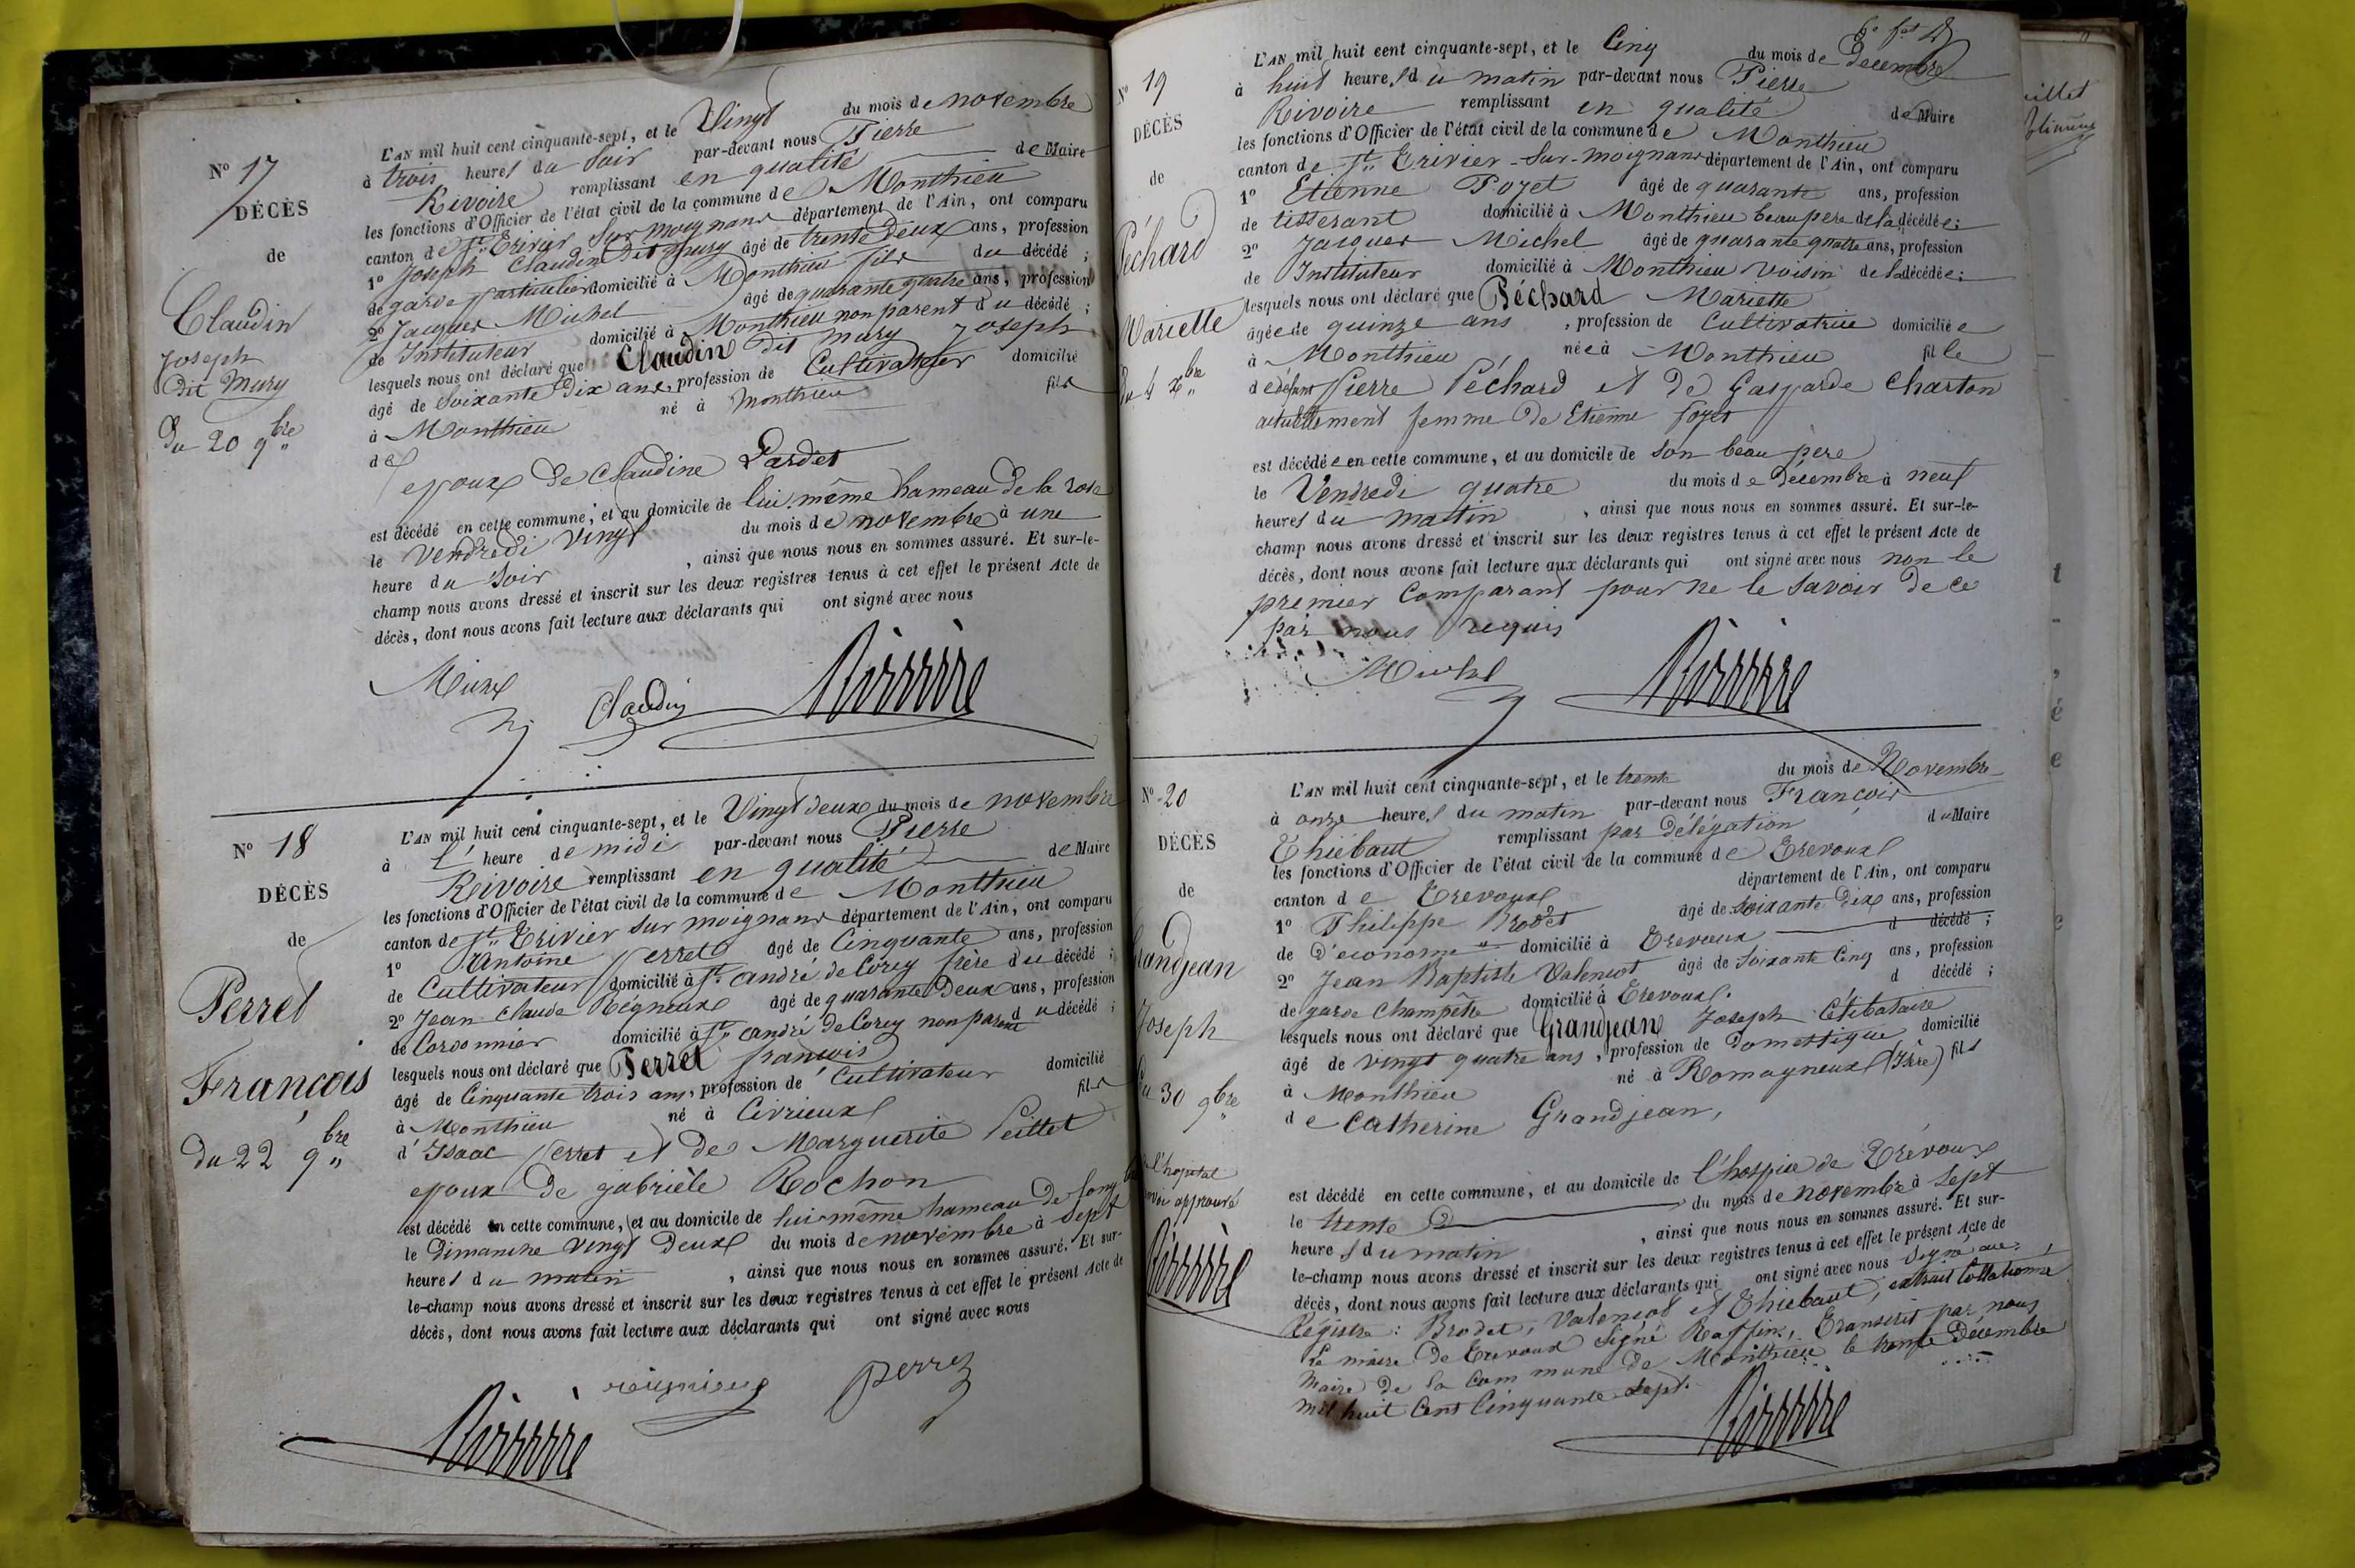 N° 17
DÉCÈS
de
Claudin
Joseph
dit Mury
du 20 9bre
L'AN mil huit cent cinquante-sept, et le Vingt du mois de novembre
à trois heures du soir par-devant nous Pierre
Rivoire remplissant en qualité de Maire
les fonctions d'Officier de l'état civil de la commune de Monthieu
canton de St Trivier sur moignans département de l'Ain, ont comparu
1° Joseph Claudin dit Mury âgé de trente deux ans, profession
de garde particulier domicilié à Monthieu fils du décédé ;
2° Jacques Michel âgé de quarante quatre ans, profession
de Instituteur domicilié à Monthieu non parent du décédé ;
lesquels nous ont déclaré que Claudin dit Mury Joseph
âgé de soixante dix ans, profession de Cultivateur domicilié
à Monthieu né à Monthieu fils
de
epoux de Claudine Pardet
est décédé en cette commune, et au domicile de lui même hameau de la rose
le Vendredi vingt du mois de novembre à une
heure du soir , ainsi que nous nous en sommes assuré. Et sur-le-
champ nous avons dressé et inscrit sur les deux registres tenus à cet effet le présent Acte de
décès, dont nous avons fait lecture aux déclarants qui ont signé avec nous
Michel Claudin Rivoire
N° 18
DÉCÈS
de
Perret
François
du 22 9bre
L'AN mil huit cent cinquante-sept, et le Vingt deux du mois de novembre
à l' heure de midi par-devant nous Pierre
Rivoire remplissant en qualité de Maire
les fonctions d'Officier de l'état civil de la commune de Monthieu
canton de St Trivier sur moignans département de l'Ain, ont comparu
1° Antoine Perret âgé de Cinquante ans, profession
de Cultivateur domicilié à St andré de Corcy frère du décédé ;
2° Jean Claude Régneux âgé de quarante deux ans, profession
de Cordonnier domicilié à St andré de Corcy non parent du décédé ;
lesquels nous ont déclaré que Perret françois
âgé de Cinquante trois ans, profession de Cultivateur domicilié
à Monthieu né à Civrieux fils
d'Isaac Perret et de Marguerite Peillet
epoux de gabrièle Rochon
est décédé en cette commune, et au domicile de lui même hameau de
le dimanche vingt deux du mois de novembre à sept
heures du matin , ainsi que nous nous en sommes assuré. Et sur-
le-champ nous avons dressé et inscrit sur les deux registres tenus à cet effet le présent Acte de
décès, dont nous avons fait lecture aux déclarants qui ont signé avec nous
perret
Rivoire
N° 19
DÉCÈS
de
Péchard
Mariette
du 4 Xbre
L'AN mil huit cent cinquante-sept, et le Cinq du mois de Décembre
à huit heures du matin par-devant nous Pierre
Rivoire remplissant en qualité de Maire
les fonctions d'Officier de l'état civil de la commune de Monthieu
canton de St Trivier-sur-moignans département de l'Ain, ont comparu
1° Etienne Pozet âgé de quarante ans, profession
de tisserant domicilié à Monthieu beau père de la décédée ;
2° Jacques Michel âgé de quarante quatre ans, profession
de Instituteur domicilié à Monthieu voisin de la décédée ;
lesquels nous ont déclaré que Péchard Mariette
âgée de quinze ans , profession de Cultivatrice domiciliée
à Monthieu née à Monthieu fille
de défunt Pierre Péchard et de Gasparde Charton
actuellement femme de Etienne Pozet
est décédée en cette commune, et au domicile de son beau père
le Vendredi quatre du mois de Décembre à neuf
heures du matin , ainsi que nous nous en sommes assuré. Et sur-le-
champ nous avons dressé et inscrit sur les deux registres tenus à cet effet le présent Acte de
décès, dont nous avons fait lecture aux déclarants qui ont signé avec nous non le
premier Comparant pour ne le savoir de ce
par nous requis
Michel Rivoire
N° 20
DÉCÈS
de
Grandjean
Joseph
du 30 9bre
l'hopital
approuvé
Rivoire
L'AN mil huit cent cinquante-sept, et le trente du mois de Novembre
à onze heures du matin par-devant nous François
Thiébaut remplissant par délégation du Maire
les fonctions d'Officier de l'état civil de la commune de Trevoux
canton de Trevoux département de l'Ain, ont comparu
1° Philippe Brodet âgé de soixante dix ans, profession
de d'économe domicilié à Trevoux d décédé ;
2° Jean Baptiste Valençot âgé de soixante Cinq ans, profession
de garde Champêtre domicilié à Trevoux. d décédé ;
lesquels nous ont déclaré que Grandjean Joseph Célibataire
âgé de vingt quatre ans , profession de domestique domicilié
à Monthieu né à Romagneux (Isère) fils
de Catherine Grandjean,
est décédé en cette commune, et au domicile de l'hospice de Trévoux
le trente du mois de novembre à sept
heures du matin , ainsi que nous nous en sommes assuré. Et sur-
le-champ nous avons dressé et inscrit sur les deux registres tenus à cet effet le présent Acte de
décès, dont nous avons fait lecture aux déclarants qui ont signé avec nous signé au
Régistre : Brodet, Valençot et Thiebaut, extrait Collationné
le maire de Trevoux signé Raffin, Transcrit par nous
Maire de la Commune de Monthieu le trente Décembre
mil huit Cent Cinquante sept.
Rivoire